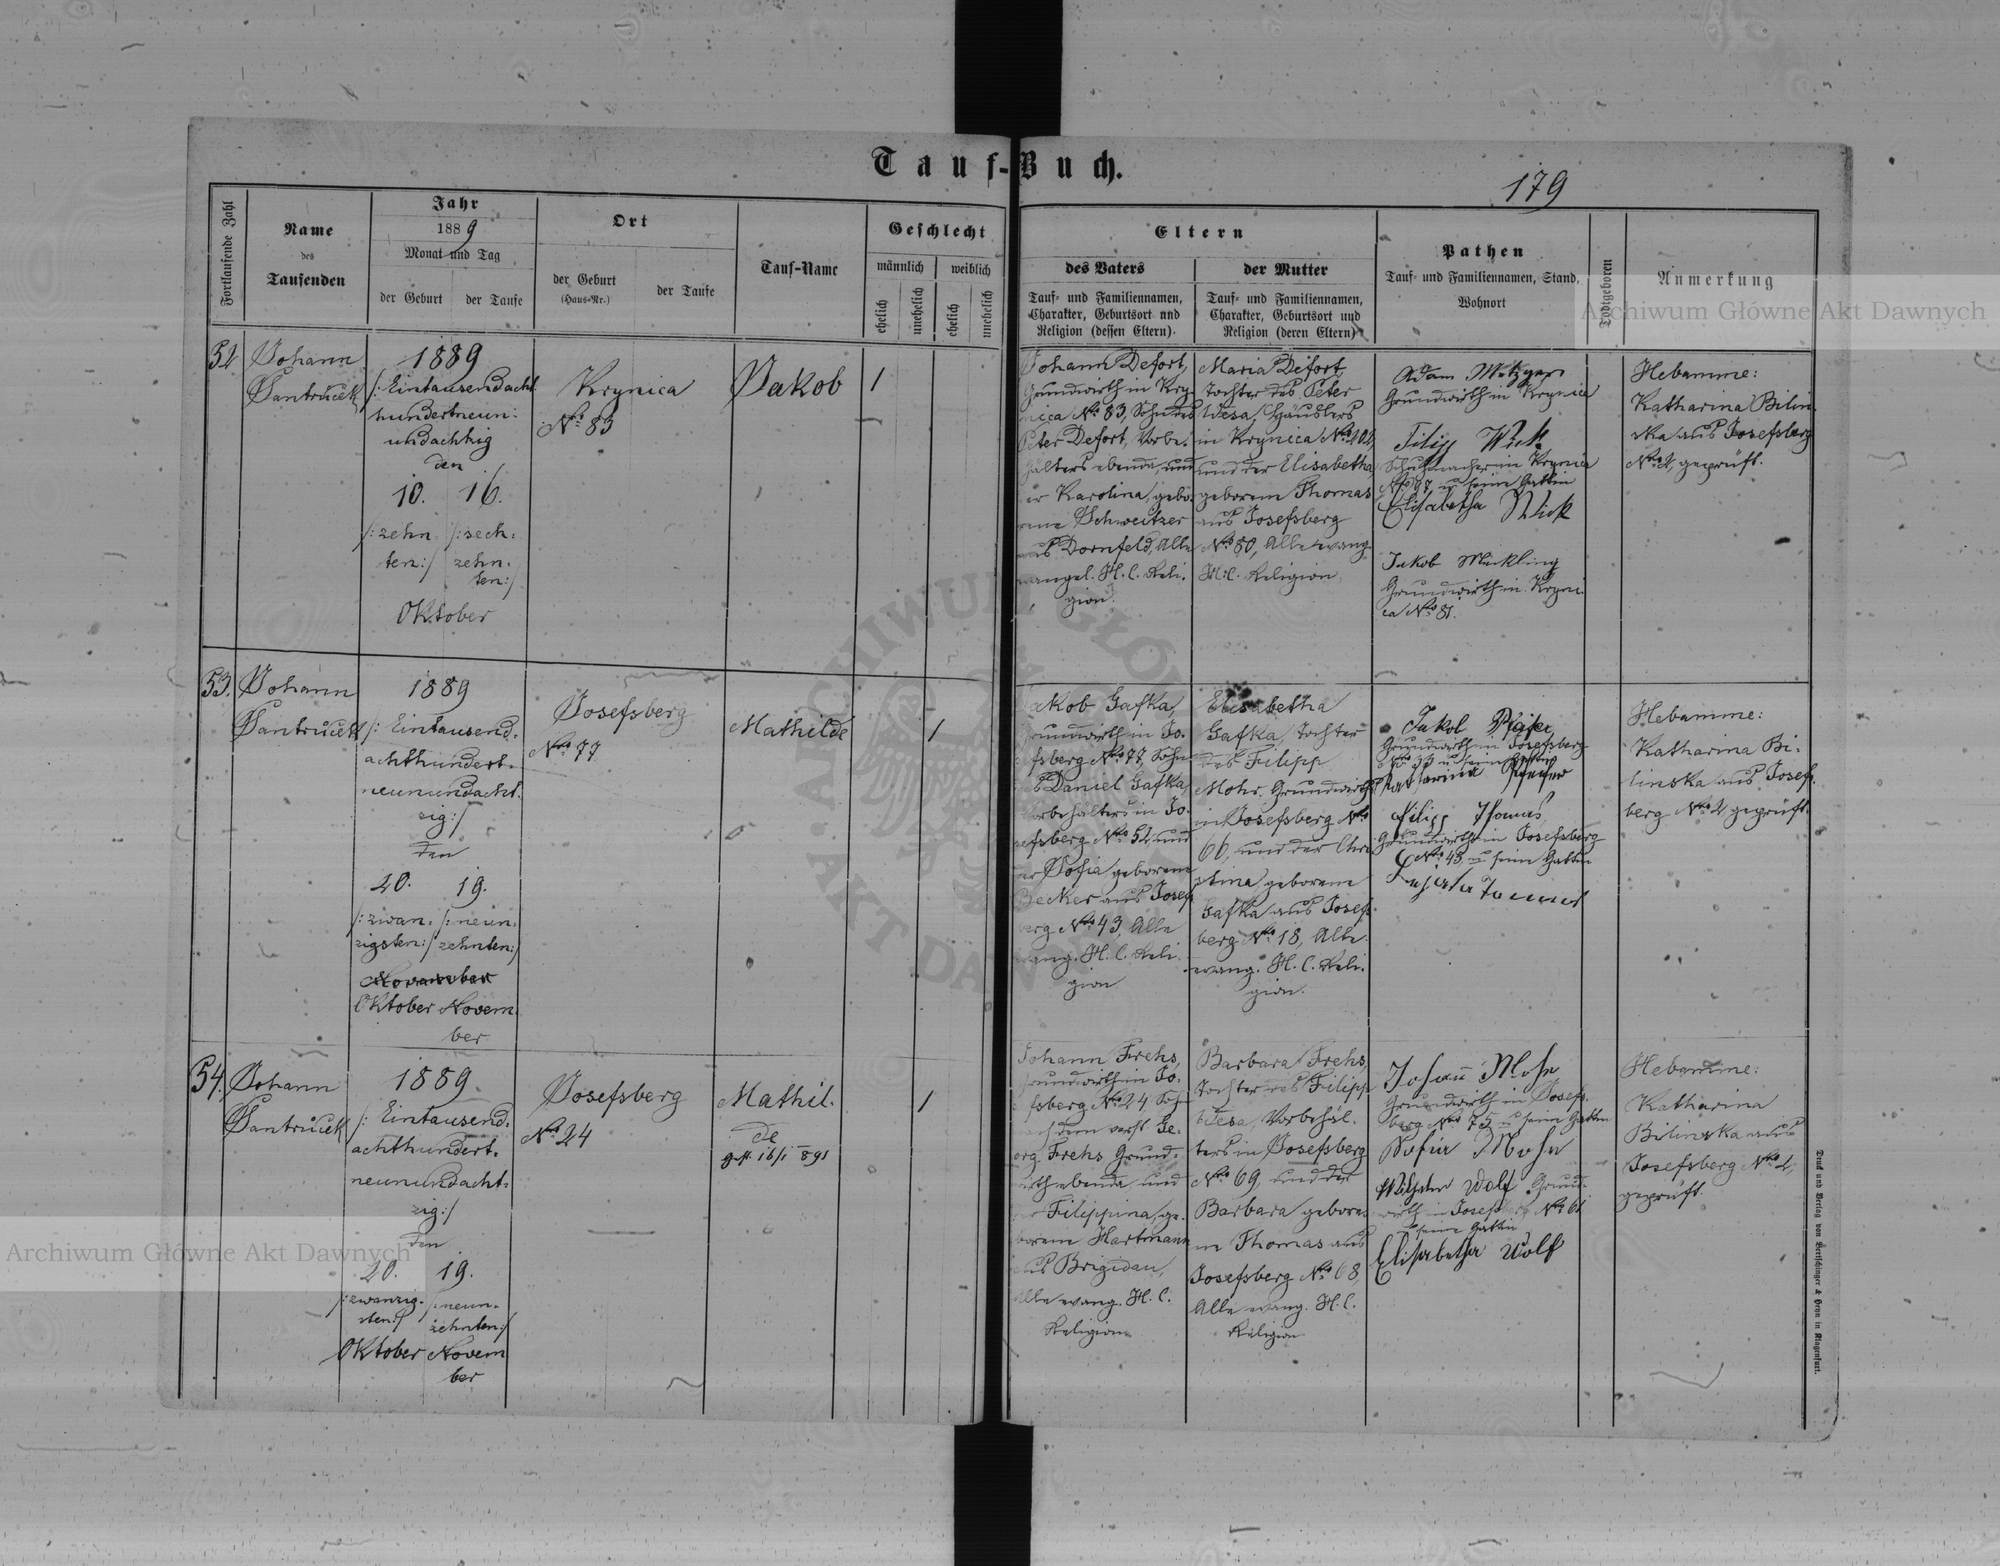 Tauf-Buch.
179
Fortlaufende Zahl
Name
des
Taufenden
Jahr
1889
Monat und Tag
der Geburt
der Taufe
Ort
der Geburt
(Haus-Nr.)
der Taufe
Tauf-Name
Geschlecht
männlich
weiblich
ehelich
unehelich
ehelich
unehelich
Eltern
des Vaters
Tauf- und Familiennamen,
Charakter, Geburtsort und
Religion (dessen Eltern)
der Mutter
Tauf- und Familiennamen,
Charakter, Geburtsort und
Religion (deren Eltern)
Pathen
Tauf- und Familiennamen, Stand,
Wohnort
Todtgeboren
Anmerkung
52
Johann
Santruček
1889
/: Eintausendacht
hundertneun-
undachtzig
den
10. 16.
/: zehn /: sech-
ten:/ zehn-
ten:/
Oktober
Krynica
No 83
Jakob
1
Johann Defort,
Grundwirth in Kry
nica No 83, Sohn des
Peter Defort, Vorbe-
hälters ebenda, und
der Karolina, gebo-
rene Schweitzer
aus Dornfeld, Alle
evangel. H. C. Reli-
gion
Maria Defort
Tochter des Peter
Wesa, Häuslers
in Krynica No 102,
und der Elisabetha
geborem Thomas
aus Josefsberg
No 80, Alle evang.
H. C. Religion
Adam Metzger
Grundwirth in Krynica
Filipp Wick
Schuhmacher in Krynica
u seine Gattin
Elisabetha Wick
Jakob Mückling
Grundwirth in Kryni-
ca No 81.
Hebamme:
Katharina Bilin
ska aus Josefsberg
No 2, geprüft.
53.
Johann
Santruček
1889
/: Eintausend-
achthundert-
neunundacht-
zig:/
den
20. 19.
/: zwan- /: neun-
zigsten:/ zehnten:/
November
Oktober Novem-
ber
Josefsberg
No 77
Mathilde
1
Jakob Gafka,
Grundwirth in Jo-
sefsberg No 77, Sohn
des Daniel Gafka,
Vorbehälters in Jo-
sefsberg No 52, und
der Sofia geborenen
Becker aus Josef
berg No 43, Alle
evang. H. C. Reli-
gion
Elisabetha
Gafka, Tochter
des Filipp
Mohr, Grundwirth
in Josefsberg No
66, und der Chri
stina geborem
Gafka aus Josefs-
berg No 18, Alle
evang. H. C. Reli-
gion.
Jakob Pfeifer
Grundwirth in Josefsberg
No 33 u seine Gattin
Katharina Pfeifer
Filipp Thomas,
Grundwirth in Josefsberg
No 48 u seine Gattin
Hebamme:
Katharina Bi-
linska aus Josefs
berg No 2, geprüft.
54.
Johann
Santruček
1889
/: Eintausend-
achthundert-
neunundacht-
zig:/
den
20. 19.
/: zwanzig- /: neun-
sten:/ zehnten:/
Oktober Novem
ber
Josefsberg
No 24
Mathil-
de
gest. 16/1 891
1
Johann Frehs,
Grundwirth in Jo-
sefsberg No 24, Soh
nach dem verst. Ge-
org Frehs Grund-
wirth ebenda, und
der Filippina, ge-
borem Hartmann
aus Brigidau,
Alle evang. H. C.
Religion
Barbara Frehs,
Tochter des Filipp
Wesa, Vorbehäl-
ters in Josefsberg
No 69, und der
Barbara gebore-
n Thomas aus
Josefsberg No 68,
Alle evang. H. C.
Religion
Johann Mohr
Grundwirth in Josefs-
berg No 75 u seine Gattin
Sofia Mohr
Wilhelm Wolf Grund-
wirth in Josefsberg No 61
u seine Gattin
Elisabetha Wolf
Hebamme:
Katharina
Bilinska aus
Josefsberg No 2,
geprüft.
Druck und Verlag von Bertschinger & Heyn in Klagenfurt.
Archiwum Główne Akt Dawnych
Archiwum Główne Akt Dawnych
ARCHIWUM GŁÓWNE
AKT DAWNYCH